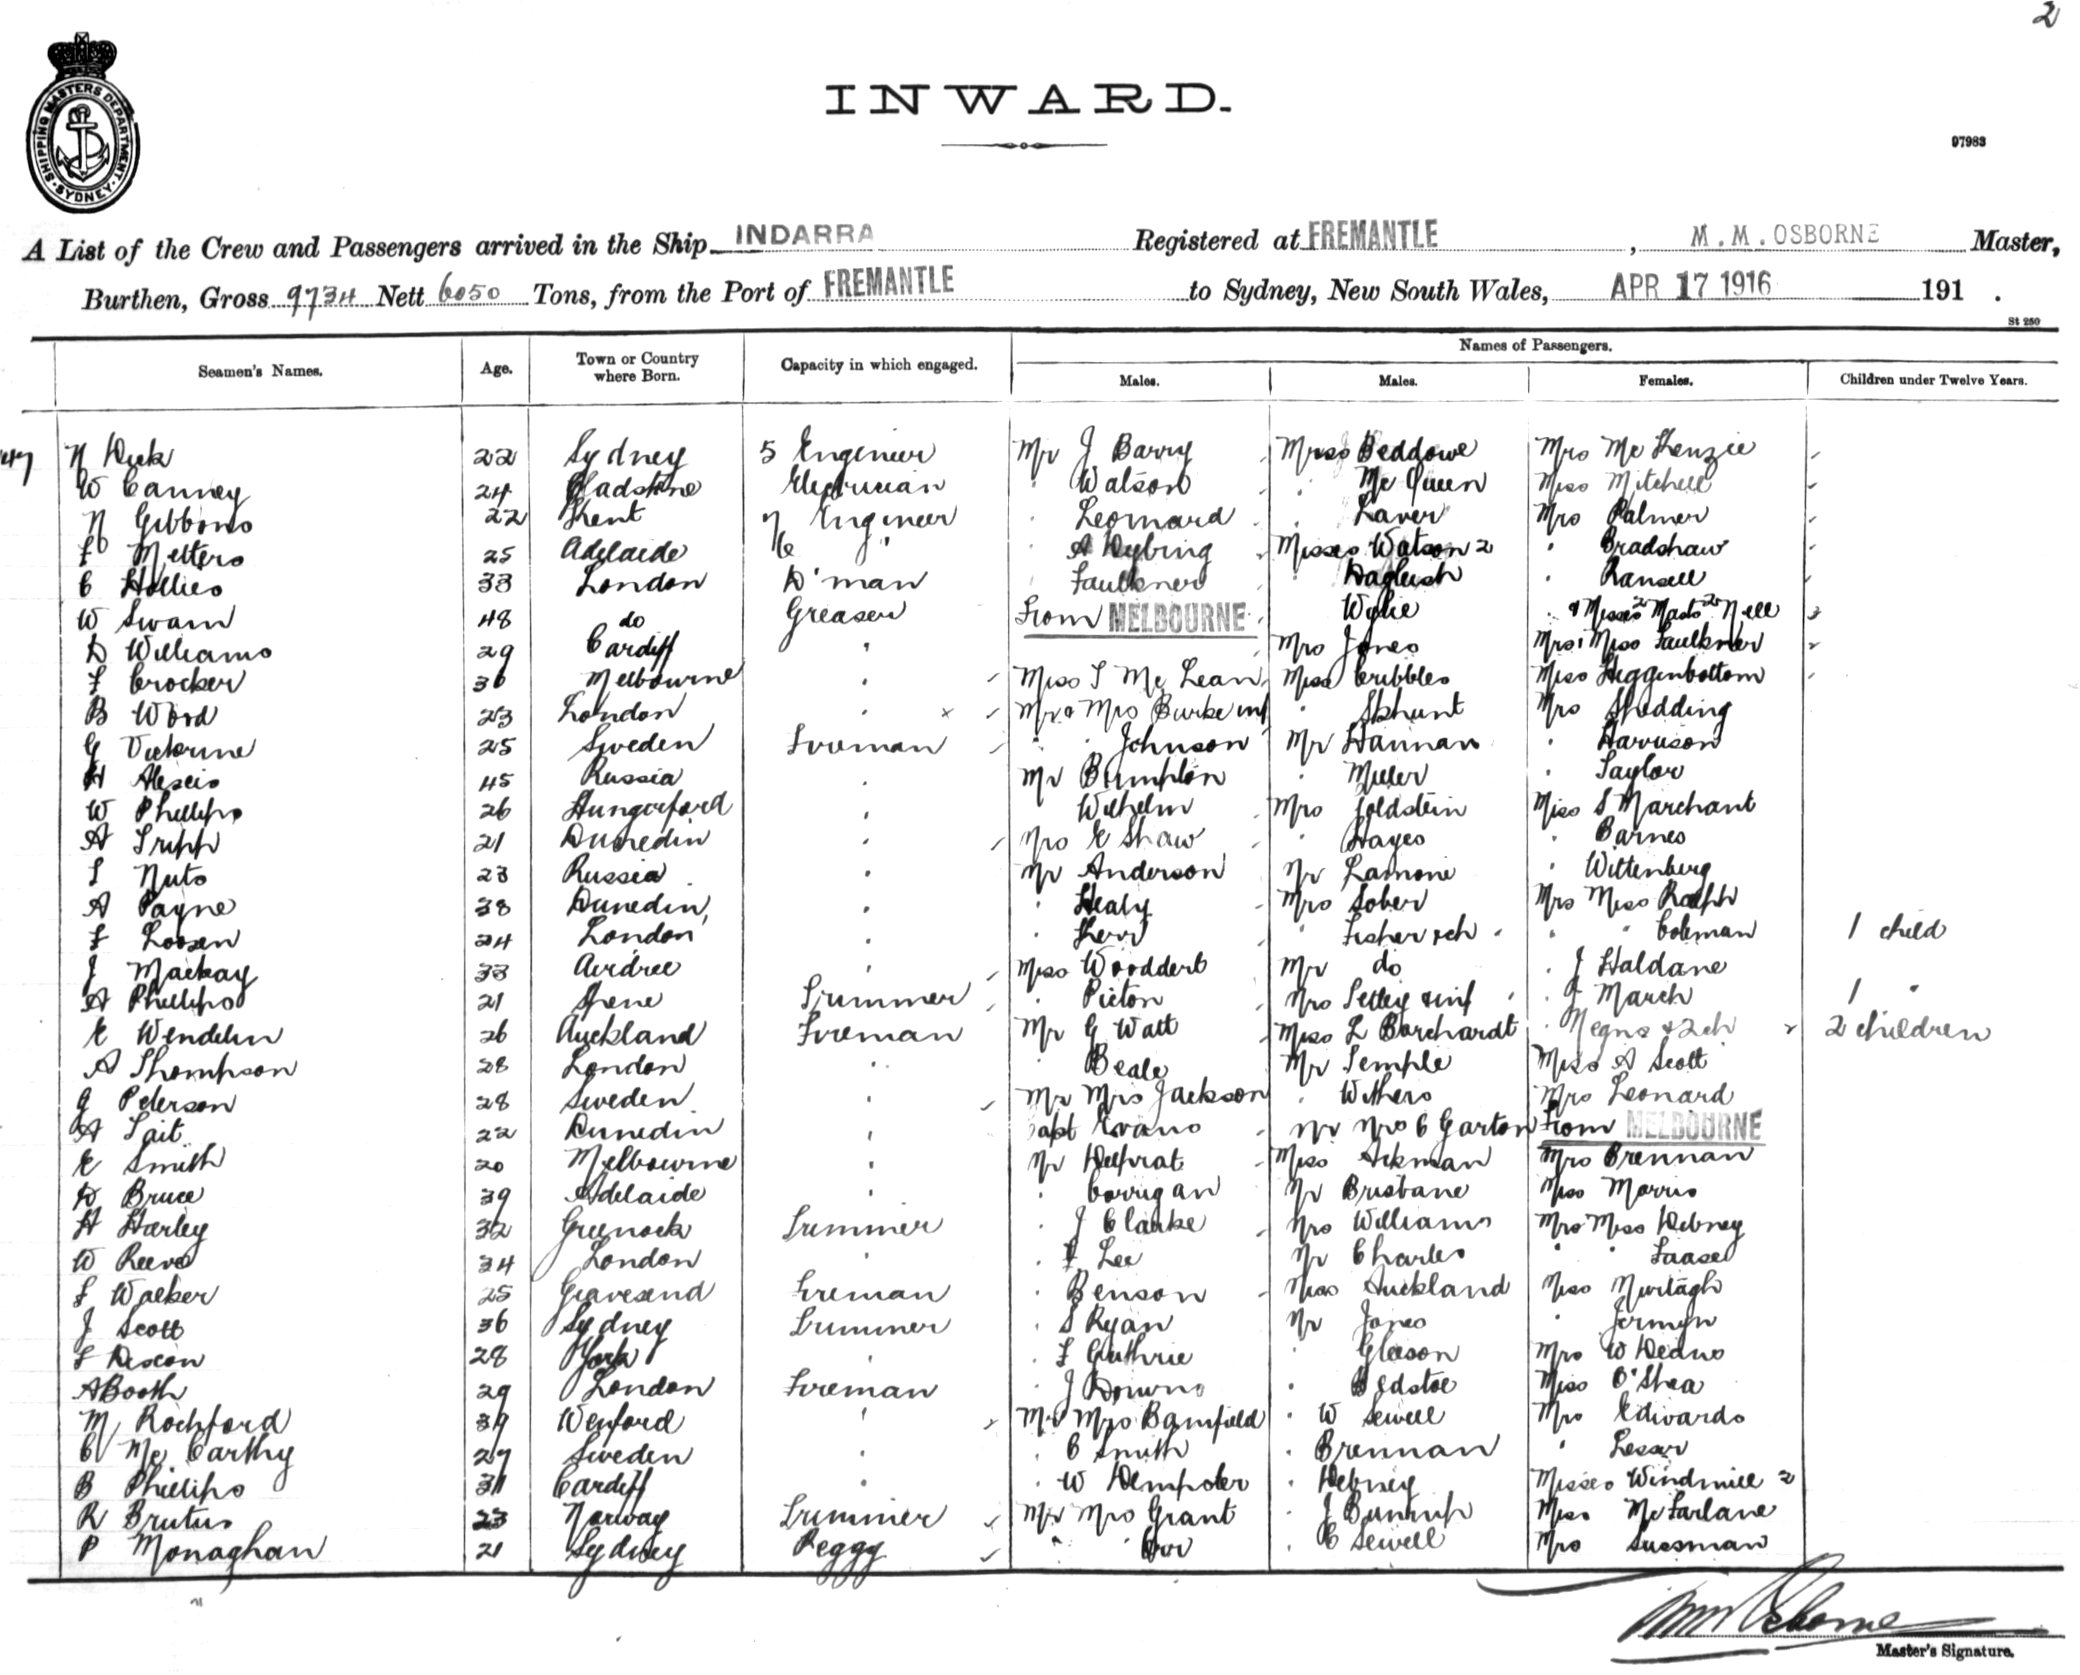 2
SHIPPING MASTERS DEPARTMENT
SYDNEY
INWARD.
97983
A List of the Crew and Passengers arrived in the Ship INDARRA Registered at FREMANTLE, M.M.OSBORNE Master,
Burthen, Gross 9734 Nett 6050 Tons, from the Port of FREMANTLE to Sydney, New South Wales, APR 17 1916 191 .
St 250
Names of Passengers.
Seamen's Names. Age. Town or Country where Born. Capacity in which engaged. Males. Males. Females. Children under Twelve Years.
N Dick 22 Sydney 5 Engineer Mr J Barry Miss Beddowe Mrs McKenzie
W Canney 24 Gladstone Electrician " Watson " McQueen Miss Mitchell
N Gibbons 22 Kent 7 Engineer " Leonard " Laver Mrs Palmer
F Melters 25 Adelaide " " A Dybing Misses Watson 2 " Bradshaw
C Hollies 33 London D'man " Faulkner " Daglish " Ransell
W Swain 48 do Greaser From MELBOURNE " Wylie " & Misses 2 Masts 2 Nell
D Williams 29 Cardiff " Mrs Jones Mrs & Miss Faulkner
F Crocker 36 Melbourne " Miss I McLean Miss Cribbles Miss Higgenbottom
B Wood 23 London " Mr & Mrs Burke inf " Skhunt Mrs Shedding
G 25 Sweden Fireman " " Johnson Mr Hannan " Harrison
H Alexis 45 Russia " Mr Bumpton " Miller " Taylor
W Phillips 26 Hungerford " " Wilhelm Mrs Goldstein Miss S Marchant
A Tripp 21 Dunedin " Mrs E Shaw " Hayes " Barnes
I Nuts 23 Russia " Mr Anderson Mr Lamone " Wittenberg
A Payne 38 Dunedin " " Healy Mrs Sober Mrs Miss Ralph
F Loosen 24 London " " Kerr " Fisher & ch " " Coleman 1 child
J Mackay 33 Airdree " Miss Wooddert Mr do " J Haldane
A Phillips 21 Trimmer " Picton Mrs Setley & inf " J March 1 "
E Wendelin 26 Auckland Fireman Mr G Watt Miss L Borchardt " Negns & 2ch 2 children
A Thompson 28 London " " Beale Mr Temple Miss A Scott
G Peterson 28 Sweden " Mr Mrs Jackson " Withers Mrs Leonard
A Tait 22 Dunedin " Capt Evans Mr Mrs C Garton From MELBOURNE
E Smith 20 Melbourne " Mr Delprat Miss Ackman Mrs Brennan
D Bruce 39 Adelaide " " Corrigan Mr Brisbane Miss Morris
H Harley 32 Greenock Trimmer " J Clarke Mrs Williams Mrs Miss Debney
W Reeve 34 London " " F Lee Mr Charles " "
F Walker 25 Gravesend Fireman " Benson Miss Auckland Miss Murtagh
J Scott 36 Sydney Trimmer " S Ryan Mr Jones " Jermyn
F Dixon 28 York " " F Guthrie " Gleeson Mrs W Deans
A Booth 29 London Fireman " J Downs " Bedstoe Miss O'Shea
M Rochford 39 Wexford " Mr Mrs Bamfield " W Sewell Mrs Edwards
C McCarthy 27 Sweden " " C Smith " Brennan " Lesser
B Phillips 31 Cardiff " " W Dempster " Debney Misses Windmill 2
R Brutus 23 Norway Trimmer Mr Mrs Grant " J Bunrup Miss McFarlane
P Monaghan 21 Sydney Peggy " " Orr " C Sewell Mrs Sussman
MM Osborne
Master's Signature.